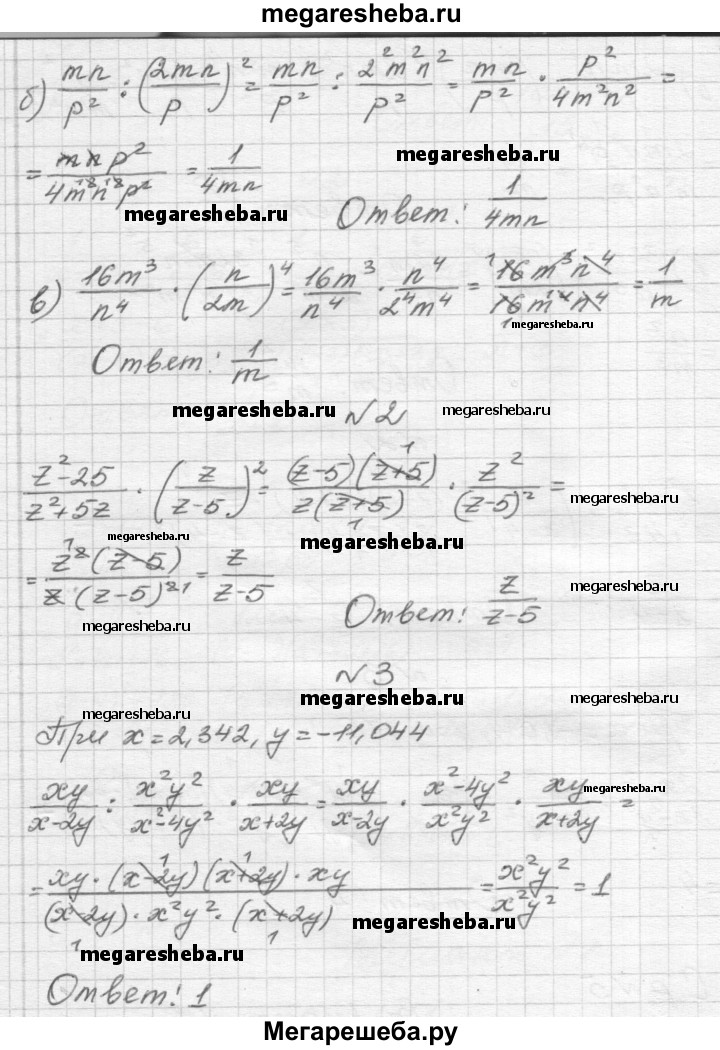 megaresheba.ru
б) mn/p² : (2mn/p)² = mn/p² : 2²m²n²/p² = mn/p² · p²/4m²n² =
= mnp²/4m²n²p² = 1/4mn
megaresheba.ru
megaresheba.ru
Ответ: 1/4mn
в) 16m³/n⁴ · (n/2m)⁴ = 16m³/n⁴ · n⁴/2⁴m⁴ = 16m³n⁴/16m⁴n⁴ = 1/m
megaresheba.ru
Ответ: 1/m
megaresheba.ru
№2
megaresheba.ru
z²-25/z²+5z · (z/z-5)² = (z-5)(z+5)/z(z+5) · z²/(z-5)² =
megaresheba.ru
megaresheba.ru
megaresheba.ru
= z²(z-5)/z·(z-5)² = z/z-5
megaresheba.ru
Ответ: z/z-5
megaresheba.ru
№3
megaresheba.ru
megaresheba.ru
При x=2,342, y=-11,044
xy/x-2y : x²y²/x²-4y² · xy/x+2y = xy/x-2y · x²-4y²/x²y² · xy/x+2y =
megaresheba.ru
= xy·(x-2y)(x+2y)·xy/(x-2y)·x²y²·(x+2y) = x²y²/x²y² = 1
megaresheba.ru
megaresheba.ru
Ответ: 1
Мегарешеба.ру